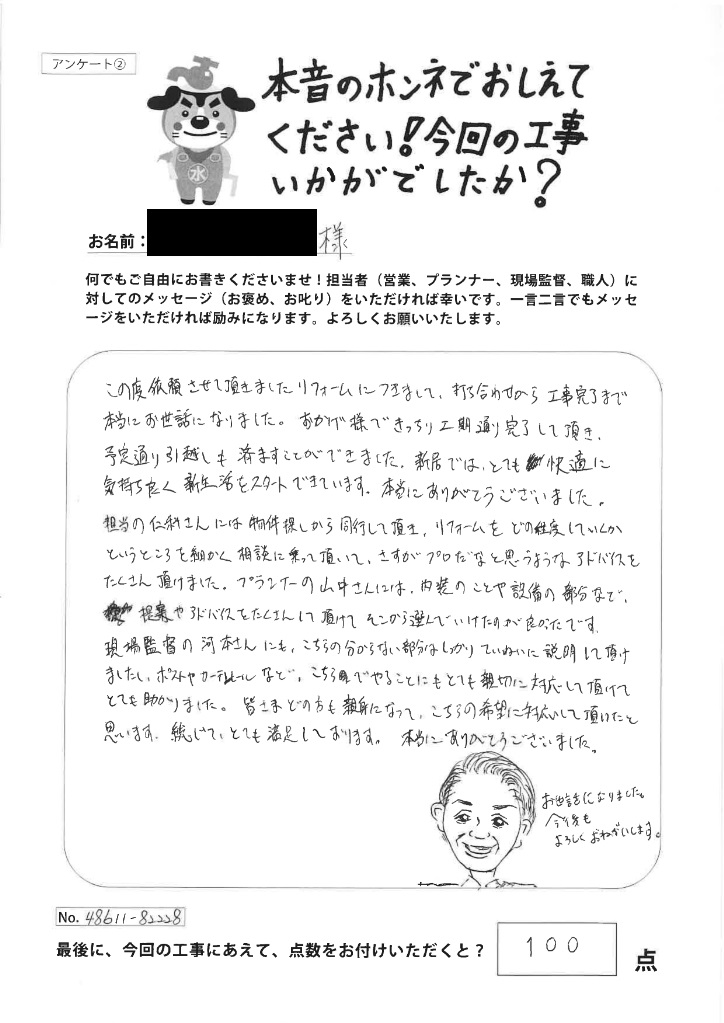 アンケート②
本音のホンネでおしえて
ください!今回の工事
いかがでしたか?
水
お名前: 様
何でもご自由にお書きくださいませ!担当者(営業、プランナー、現場監督、職人)に
対してのメッセージ(お褒め、お叱り)をいただければ幸いです。一言二言でもメッセ
ージをいただければ励みになります。よろしくお願いいたします。
この度依頼させて頂きましたリフォームにつきまして、打ち合わせから工事完了まで
本当にお世話になりました。おかげ様できっちり工期通り完了して頂き、
予定通り引越しも済ますことができました。新居では、とても快適に
気持ち良く新生活をスタートできています。本当にありがとうございました。
担当の仁科さんには物件探しから同行して頂き、リフォームをどの程度していくか
というところを細かく相談に乗って頂いて、さすがプロだなと思うようなアドバイスを
たくさん頂けました。プランナーの山中さんには、内装のことや設備の部分など、
提案やアドバイスをたくさんして頂けてそこから選んでいけたのが良かったです。
現場監督の河本さんにも、こちらの分からない部分はしっかりていねいに説明して頂け
ましたし、ポストやカーテンレールなど、こちらでやることにもとても親切に対応して頂けて
とても助かりました。皆さまどの方も親身になって、こちらの希望に対応して頂けたと
思います。総じて、とても満足しております。本当にありがとうございました。
お世話になりました。
今後も
よろしくおねがいします。
No. 48611-82228
最後に、今回の工事にあえて、点数をお付けいただくと? 100 点